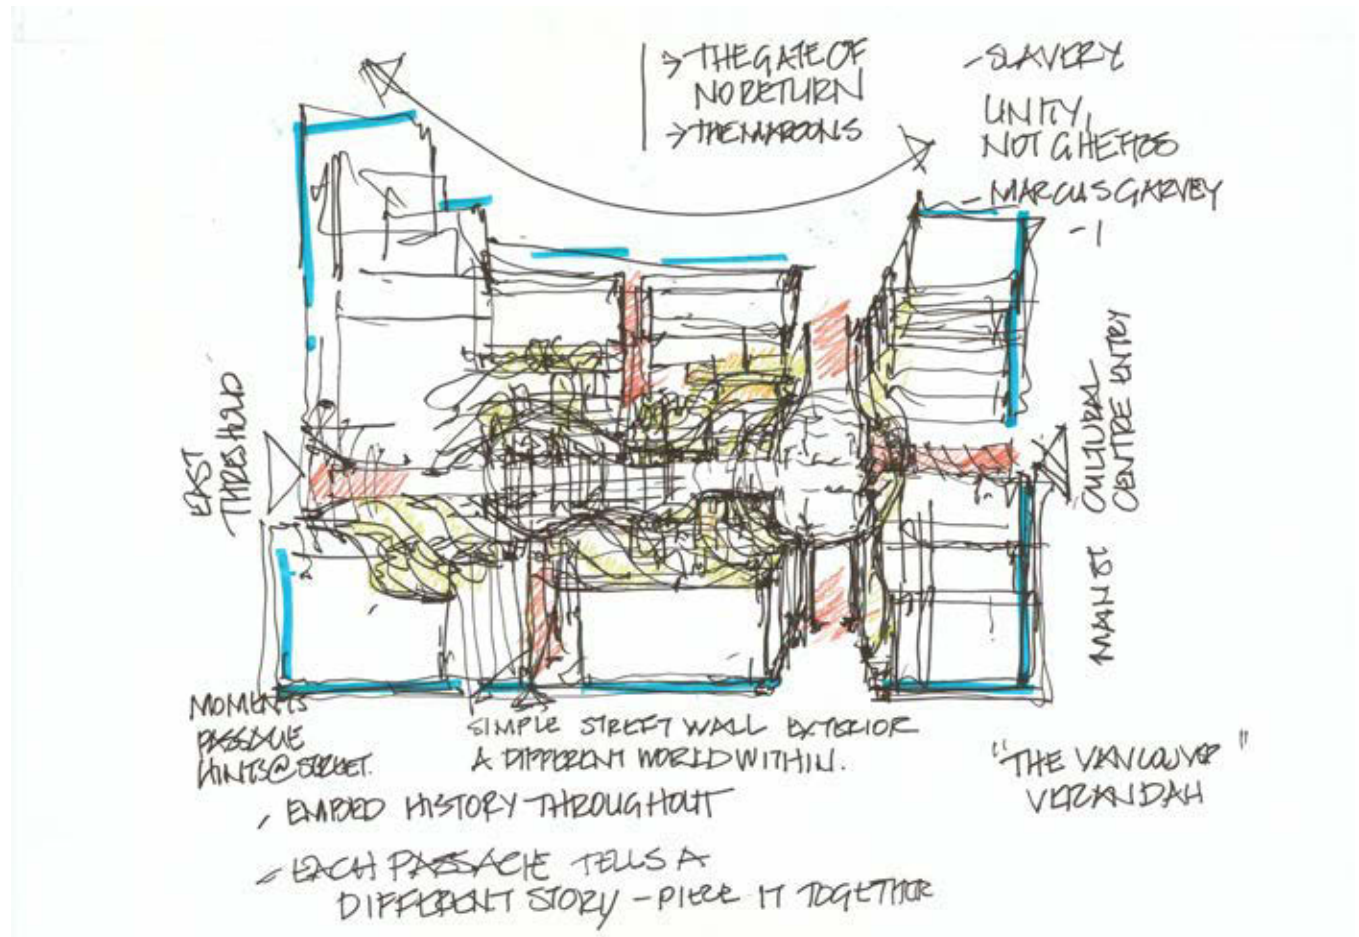 → THE GATE OF
NO RETURN
→ THE MAROONS
- SLAVERY
UNITY,
NOT GHETTOS
- MARCUS GARVEY
- 1
EAST
THRESHOLD
MAIN ST CULTURAL
CENTRE ENTRY
MOMENTS
PASSAGE
HINTS@STREET.
SIMPLE STREET WALL EXTERIOR
A DIFFERENT WORLD WITHIN.
"THE VANCOUVER"
VERANDAH
- EMBED HISTORY THROUGHOUT
- EACH PASSAGE TELLS A
DIFFERENT STORY - PIECE IT TOGETHER